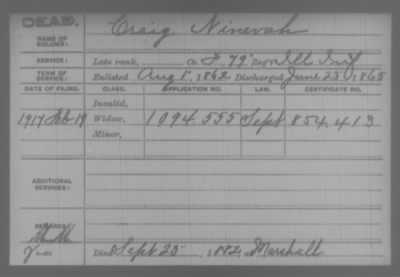 DEAD.
NAME OF SOLDIER: Craig, Ninevah
SERVICE: Late rank, Co. F, 79" Reg't Ill Inf
TERM OF SERVICE: Enlisted Aug 1", 1862 Discharged June 23", 1865
DATE OF FILING. CLASS. APPLICATION NO. LAW. CERTIFICATE NO.
Invalid,
1917 Feb 19 Widow, 1094.555 Sept 854.413
Minor,
ADDITIONAL SERVICES:
REMARKS:
Died Sept 23", 1882, at Marshall